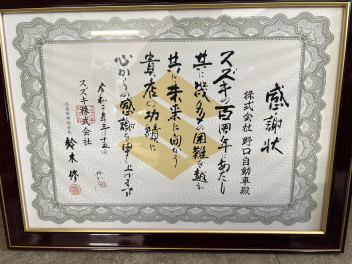 感謝状
株式会社 野口自動車殿
スズキの百周年にあたし
共に幾多の困難を越え
共に未来に向かう
貴店の功績に
心からの感謝を申し上げます
令和二年三月十五日
スズキ株式会社
代表取締役会長
鈴木 修